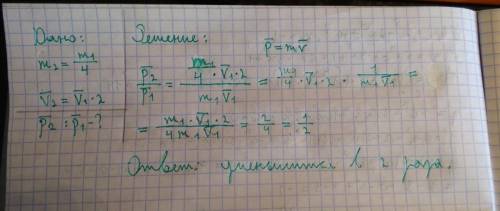 Дано:
m₂ = m₁/4
v̅₂ = v̅₁ · 2
p̅₂ : p̅₁ - ?
Решение:
p̅ = mv̅
p̅₂/p̅₁ = (m₁/4 · v̅₁ · 2)/(m₁v̅₁) = m₁/4 · v̅₁ · 2 · 1/(m₁v̅₁) =
= (m₁ · v̅₁ · 2)/(4m₁v̅₁) = 2/4 = 1/2
Ответ: уменьшится в 2 раза.